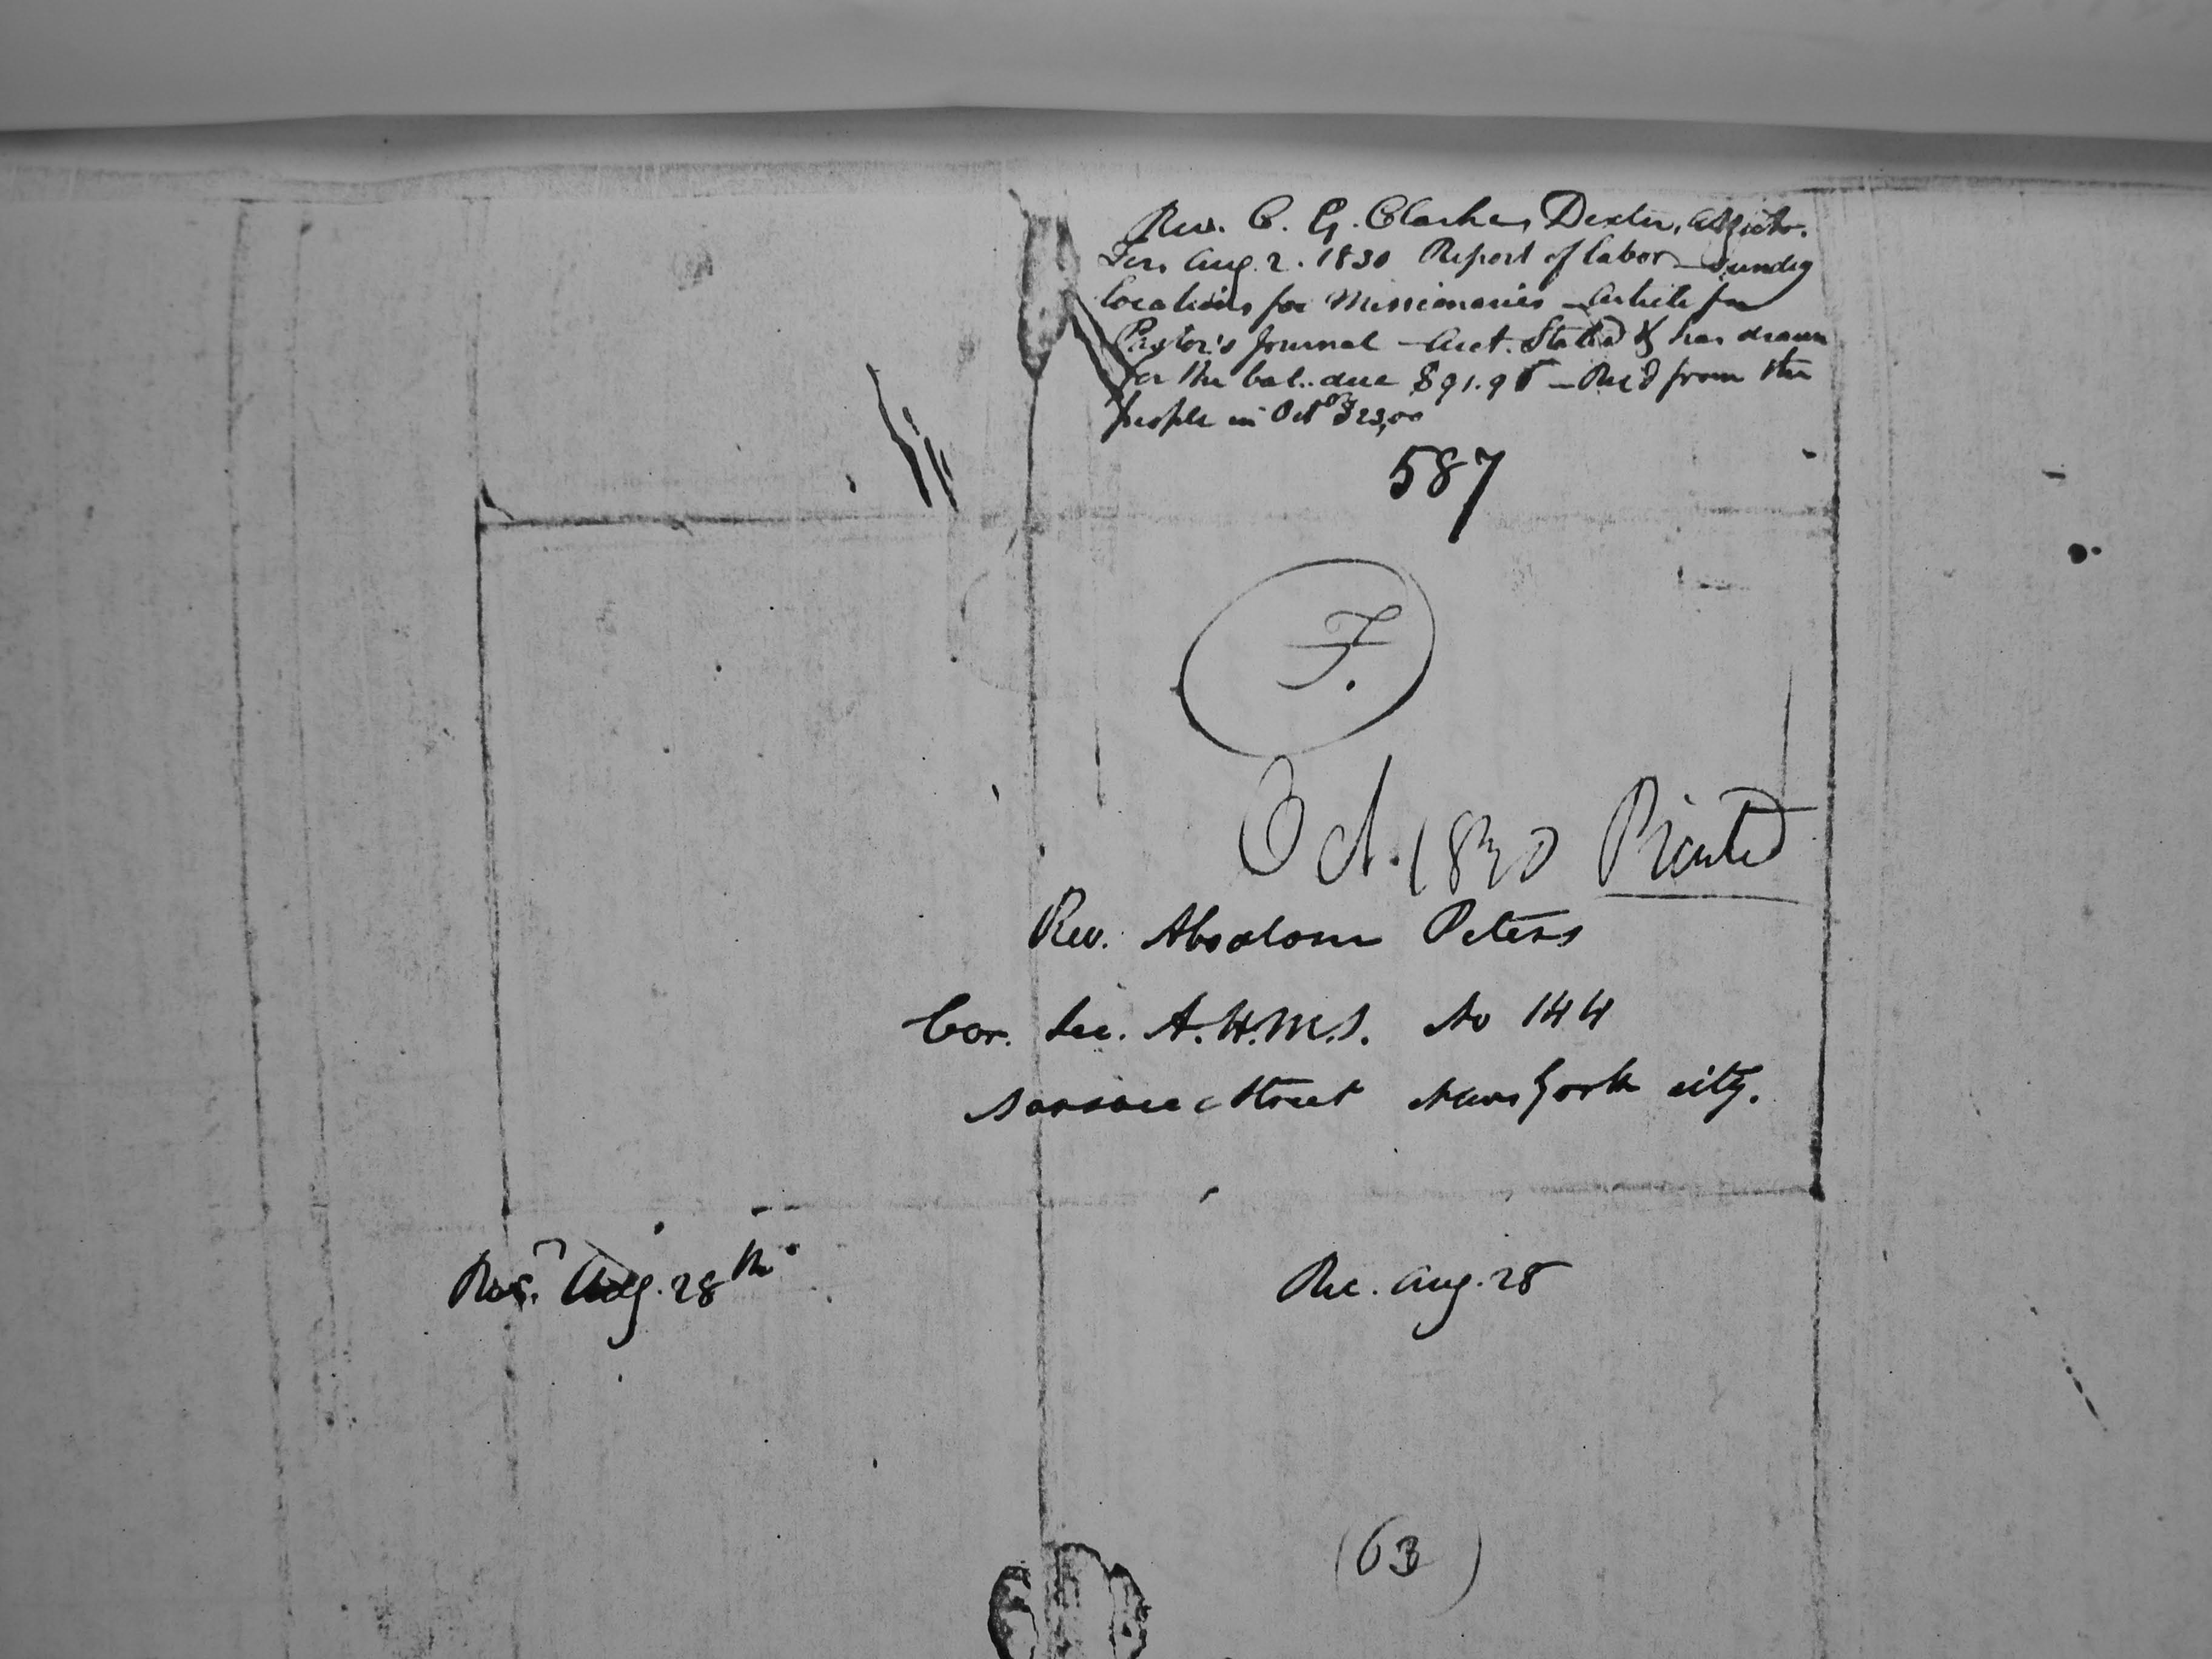 Rev. C. G. Clarke, Dexter, Mich.
Ter. Aug. 2. 1830 Report of labor – Sundry
locations for Missionaries – Article for
Pastor's Journal – Acct. Stated & has drawn
for the bal. due $91.95 – Rec'd from the
people in Oct $23,00
587
F.
Oct. 1830 Printed
Rev. Absalom Peters
Cor. Sec. A.H.M.S. No 144
Nassau Street New York city.
Aug. 28th
Rec. Aug. 28
(63)